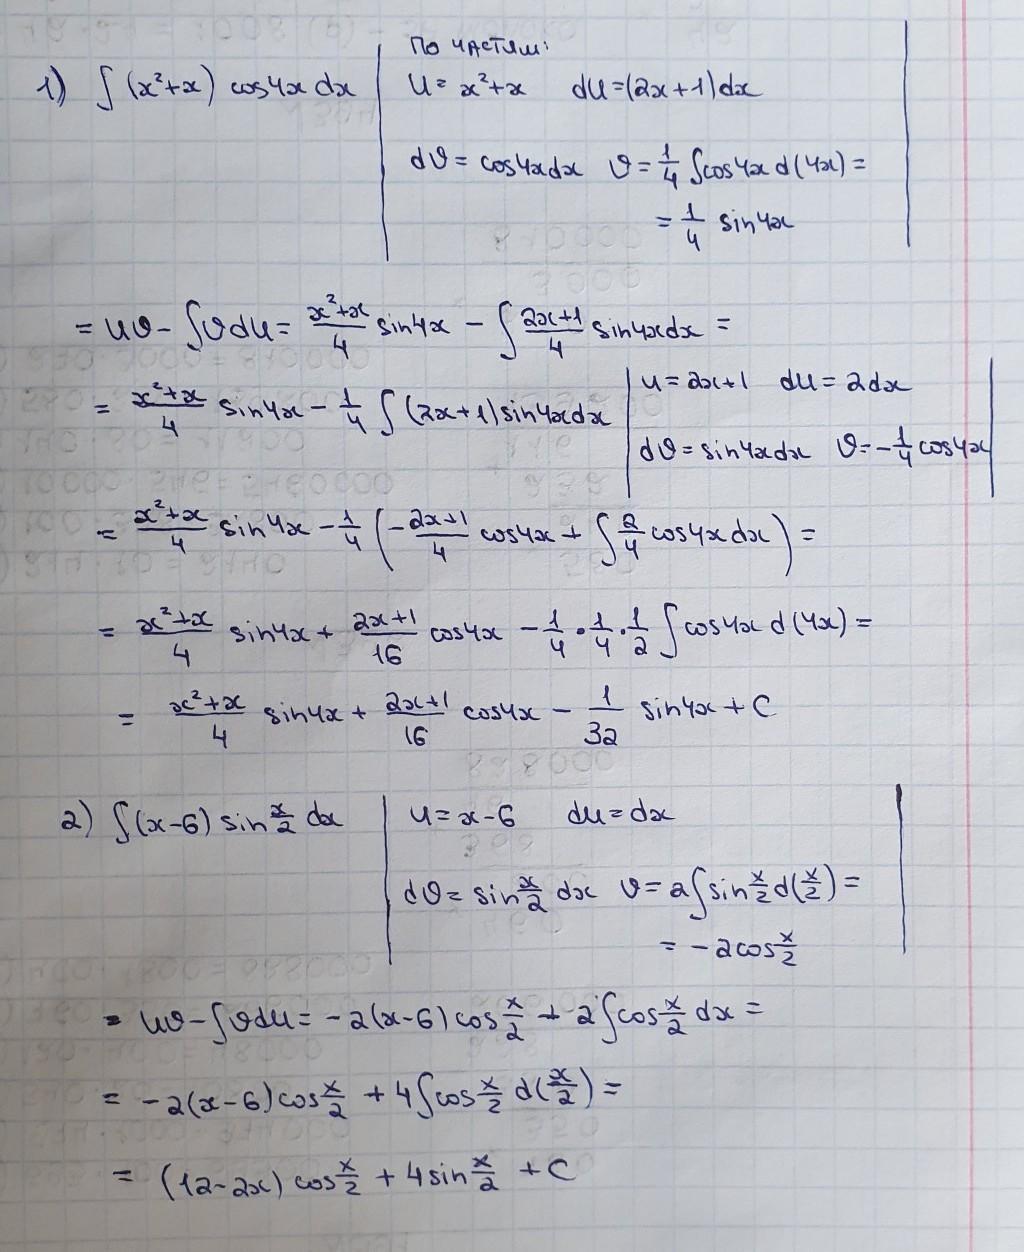 По частям:
1) ∫ (x²+x) cos4x dx | u = x²+x du = (2x+1)dx
dv = cos4xdx v = 1/4 ∫cos4x d(4x) =
= 1/4 sin4x
= uv - ∫vdu = (x²+x)/4 sin4x - ∫ (2x+1)/4 sin4xdx =
= (x²+x)/4 sin4x - 1/4 ∫ (2x+1) sin4xdx | u = 2x+1 du = 2dx
dv = sin4xdx v = -1/4 cos4x
= (x²+x)/4 sin4x - 1/4 (-(2x+1)/4 cos4x + ∫ 2/4 cos4x dx) =
= (x²+x)/4 sin4x + (2x+1)/16 cos4x - 1/4 · 1/4 · 1/2 ∫ cos4x d(4x) =
= (x²+x)/4 sin4x + (2x+1)/16 cos4x - 1/32 sin4x + C
2) ∫(x-6) sin x/2 dx | u = x-6 du = dx
dv = sin x/2 dx v = 2∫sin x/2 d(x/2) =
= -2cos x/2
= uv - ∫vdu = -2(x-6) cos x/2 + 2∫cos x/2 dx =
= -2(x-6) cos x/2 + 4∫cos x/2 d(x/2) =
= (12-2x) cos x/2 + 4 sin x/2 + C